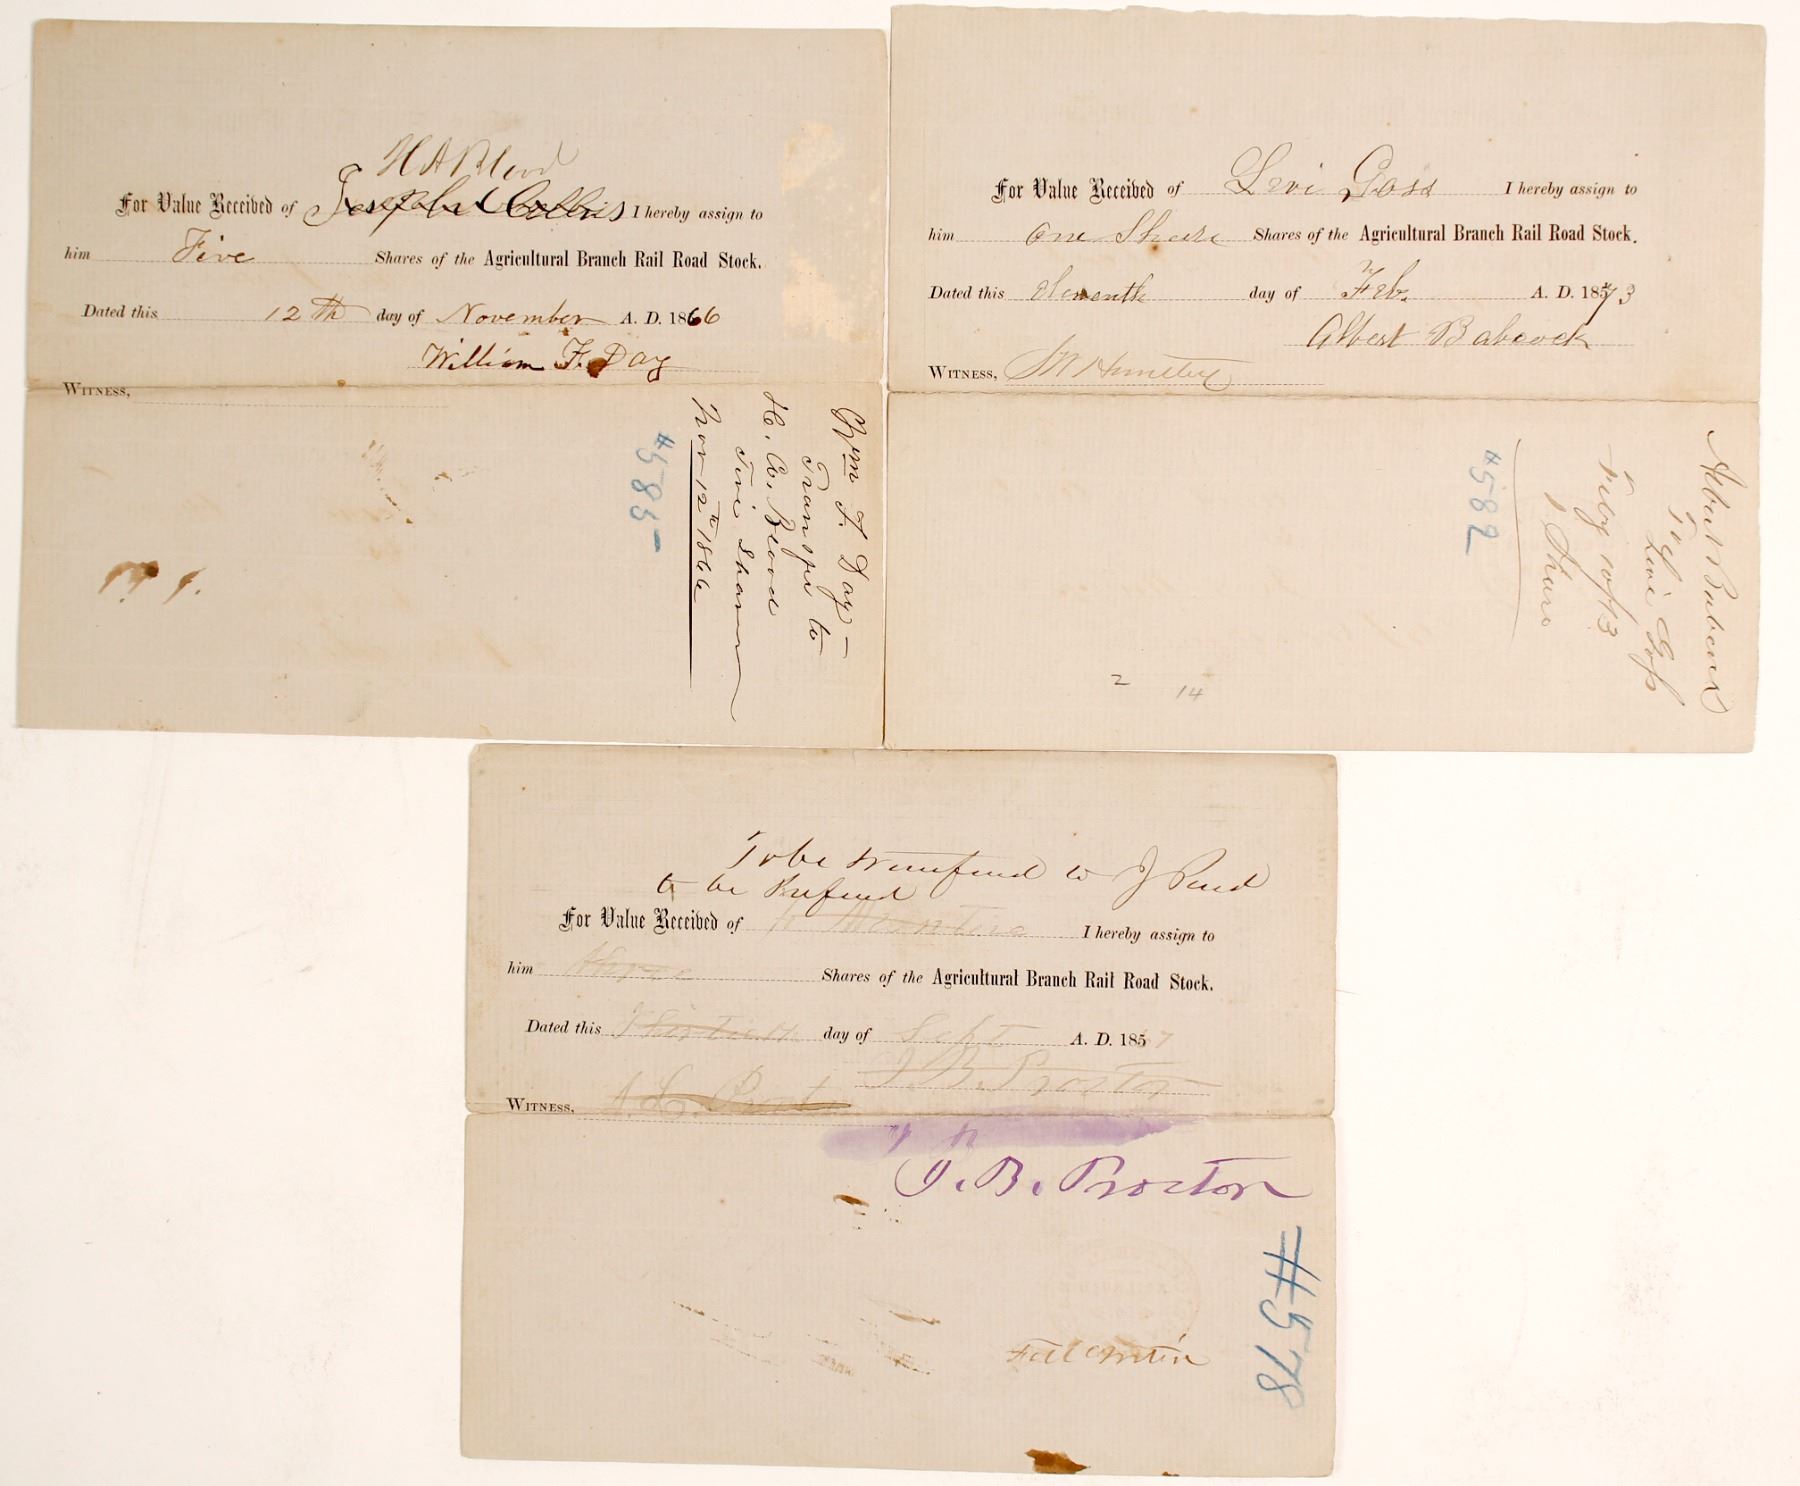 H A Blood
For Value Received of Joseph Collins I hereby assign to
him Five Shares of the Agricultural Branch Rail Road Stock.
Dated this 12th day of November A. D. 1866
William F. Day
Witness,
Wm F. Day –
Transfer to
H. A. Blood
Five Shares
Nov 12th 1866
#585-
For Value Received of Levi Goss I hereby assign to
him One Share Shares of the Agricultural Branch Rail Road Stock.
Dated this Eleventh day of Feb. A. D. 1873
Albert Babcock
Witness,
Albert Babcock
To
Levi Goss
1 Share
#582
2 14
To be to J
to be
For Value Received of I hereby assign to
him Three Shares of the Agricultural Branch Rail Road Stock.
Dated this Thirteenth day of Sept A. D. 1857
J. B. Proctor
Witness,
J. B. Proctor
#578